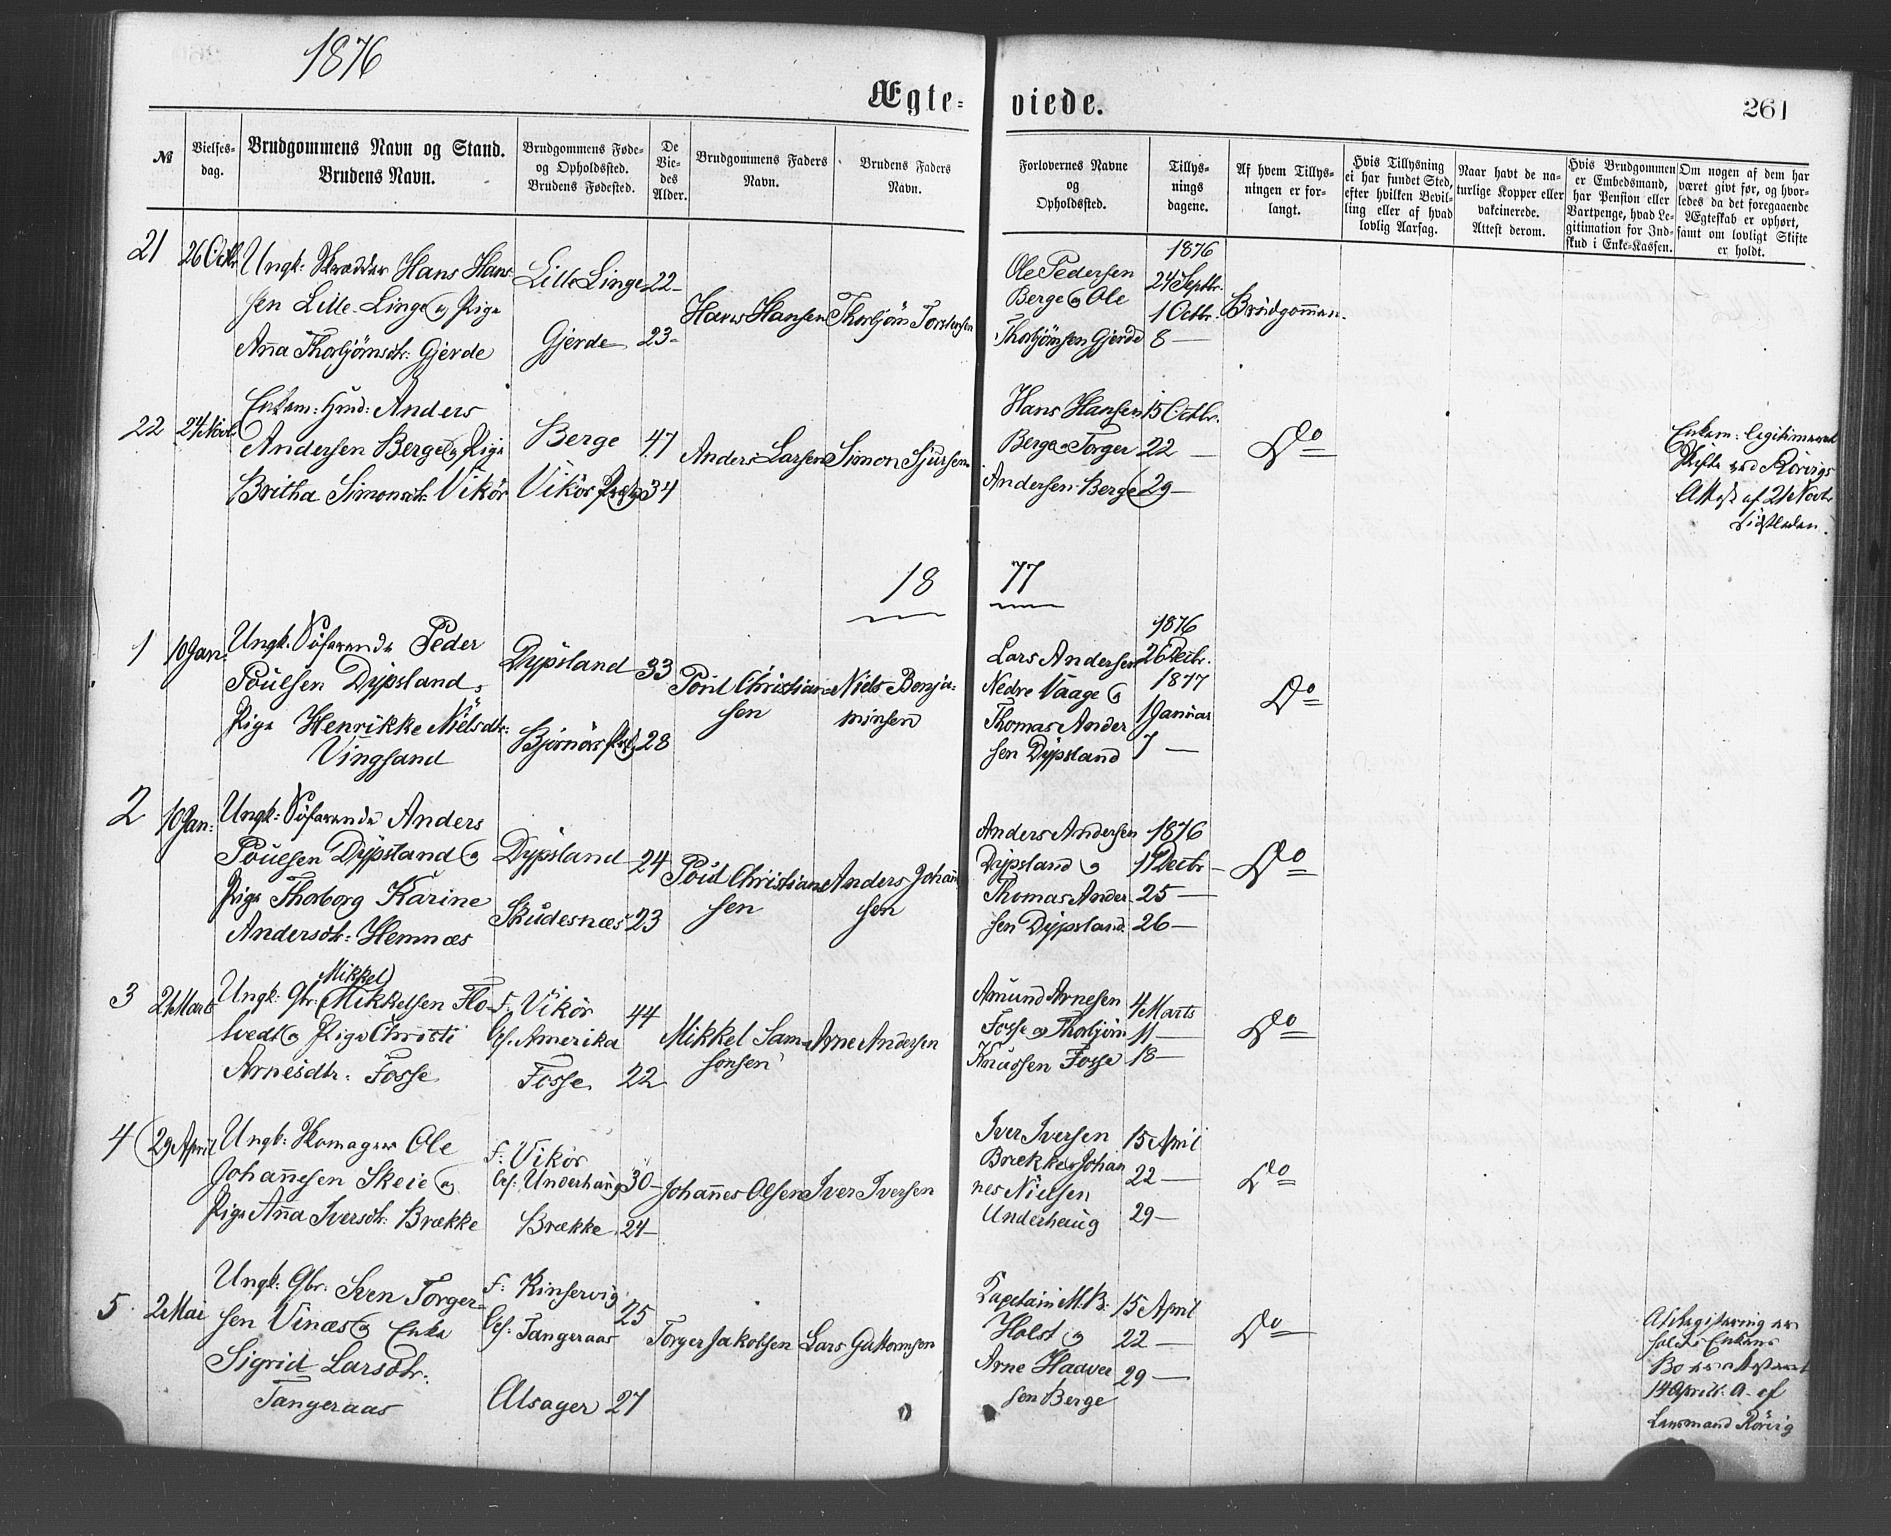 1876
Ægte-viede.
261
№
Vielses-
dag.
Brudgommens Navn og Stand.
Brudens Navn.
Brudgommens Føde-
og Opholdssted.
Brudens Fødested.
De
Vie-
des
Alder.
Brudgommens Faders
Navn.
Brudens Faders
Navn.
Forlovernes Navne
og
Opholdssted.
Tillys-
nings
dagene.
Af hvem Tillys-
ningen er for-
langt.
Hvis Tillysning
ei har fundet Sted,
efter hvilken Bevil-
ling eller af hvad
lovlig Aarsag.
Naar havt de na-
turlige Kopper eller
vakcinerede.
Attest derom.
Hvis Brudgommen
er Embedsmand,
har Pension eller
Vartpenge, hvad Le-
gitimation for Ind-
skud i Enke-Kassen.
Om nogen af dem har
været gift før, og hvor-
ledes da det foregaaende
Ægteskab er ophørt,
samt om lovligt Skifte
er holdt.
21
26 Octbr
Ungk: Skrædder Hans Han-
sen Lille Linge og Pige
Anna Thorbjörnsdtr: Gjerde
Lille Linge
Gjerde
22-
23-
Hans Hansen
Thorbjörn Torstensen
Ole Pedersen
Berge og Ole
Thorbjörnsen Gjerde
1876
24 Septbr.
1 Octbr.
8 —
Brudgommen.
22
24 Novb.
Enkem: Hmd: Anders
Andersen Berge og Pige
Britha Simonsdtr: Vikör
Berge
Vikör Præstg
47
34
Anders Larsen
Simon Sjursen
Hans Hansen
Berge og Torger
Andersen Berge
15 Octbr.
22 —
29 —
Do
Enkem: legitimeret
Skifte ved Rörvigs
Attest af 21 Novbr
sidstleden.
18 77
1
10 Jan:
Ungk: Söfarende Peder
Poulsen Dypsland,
Pige Henrikke Nielsdtr:
Vingsand
Dypsland
Björnörs Præstg
33
28
Poul Christian-
sen
Niels Benja-
minsen
Lars Andersen
Nedre Vaage og
Thomas Ander
sen Dypsland
1876
26 Decbr.
1877
1 Januar
7 —
Do
2
10 Jan:
Ungk: Söfarende Anders
Poulsen Dypsland og
Pige Thorborg Karine
Andersdtr: Hemnæs
Dypsland
Skudesnæs
24
23
Poul Christian-
sen
Anders Johan-
sen
Anders Andersen
Dypsland og
Thomas Ander-
sen Dypsland
1876
17 Decbr —
25 —
26 —
Do
3
21 Marts
Ungk: Gbr: Mikkel
Mikkelsen Flo-
tvedt og Pige Christi
Arnesdtr: Fosse
F. Vikör
Bes. Amerika
Fosse
44
22
Mikkel Sam-
sonsen
Arne Andersen
Amund Arnesen
Fosse og Thorbjörn
Knudsen Fosse
4 Marts
11 —
18 —
Do
4
29 April
Ungk: Skomager Ole
Johannesen Skeie og
Pige Anna Iversdtr: Brække
F: Vikör
Bes: Underhaug
Brække
30-
24-
Johannes Olsen
Iver Iversen
Iver Iversen
Brække og Johan
nes Nielsen
Underhaug
15 April
22 —
29 —
Do
5
2 Mai
Ungk: Gbr: Sven Torger-
sen Vinæs og Enke
Sigrid Larsdtr:
Tangeraas
F: Kinservig
Bes: Tangeraas
Alsager
25
27
Torger Jakobsen
Lars Guttormsen
Kaptein M. B.
Holst og
Arne Haaver
sen Berge
15 April
22 —
29 —
Do
14 April
Lensmand Rörvig